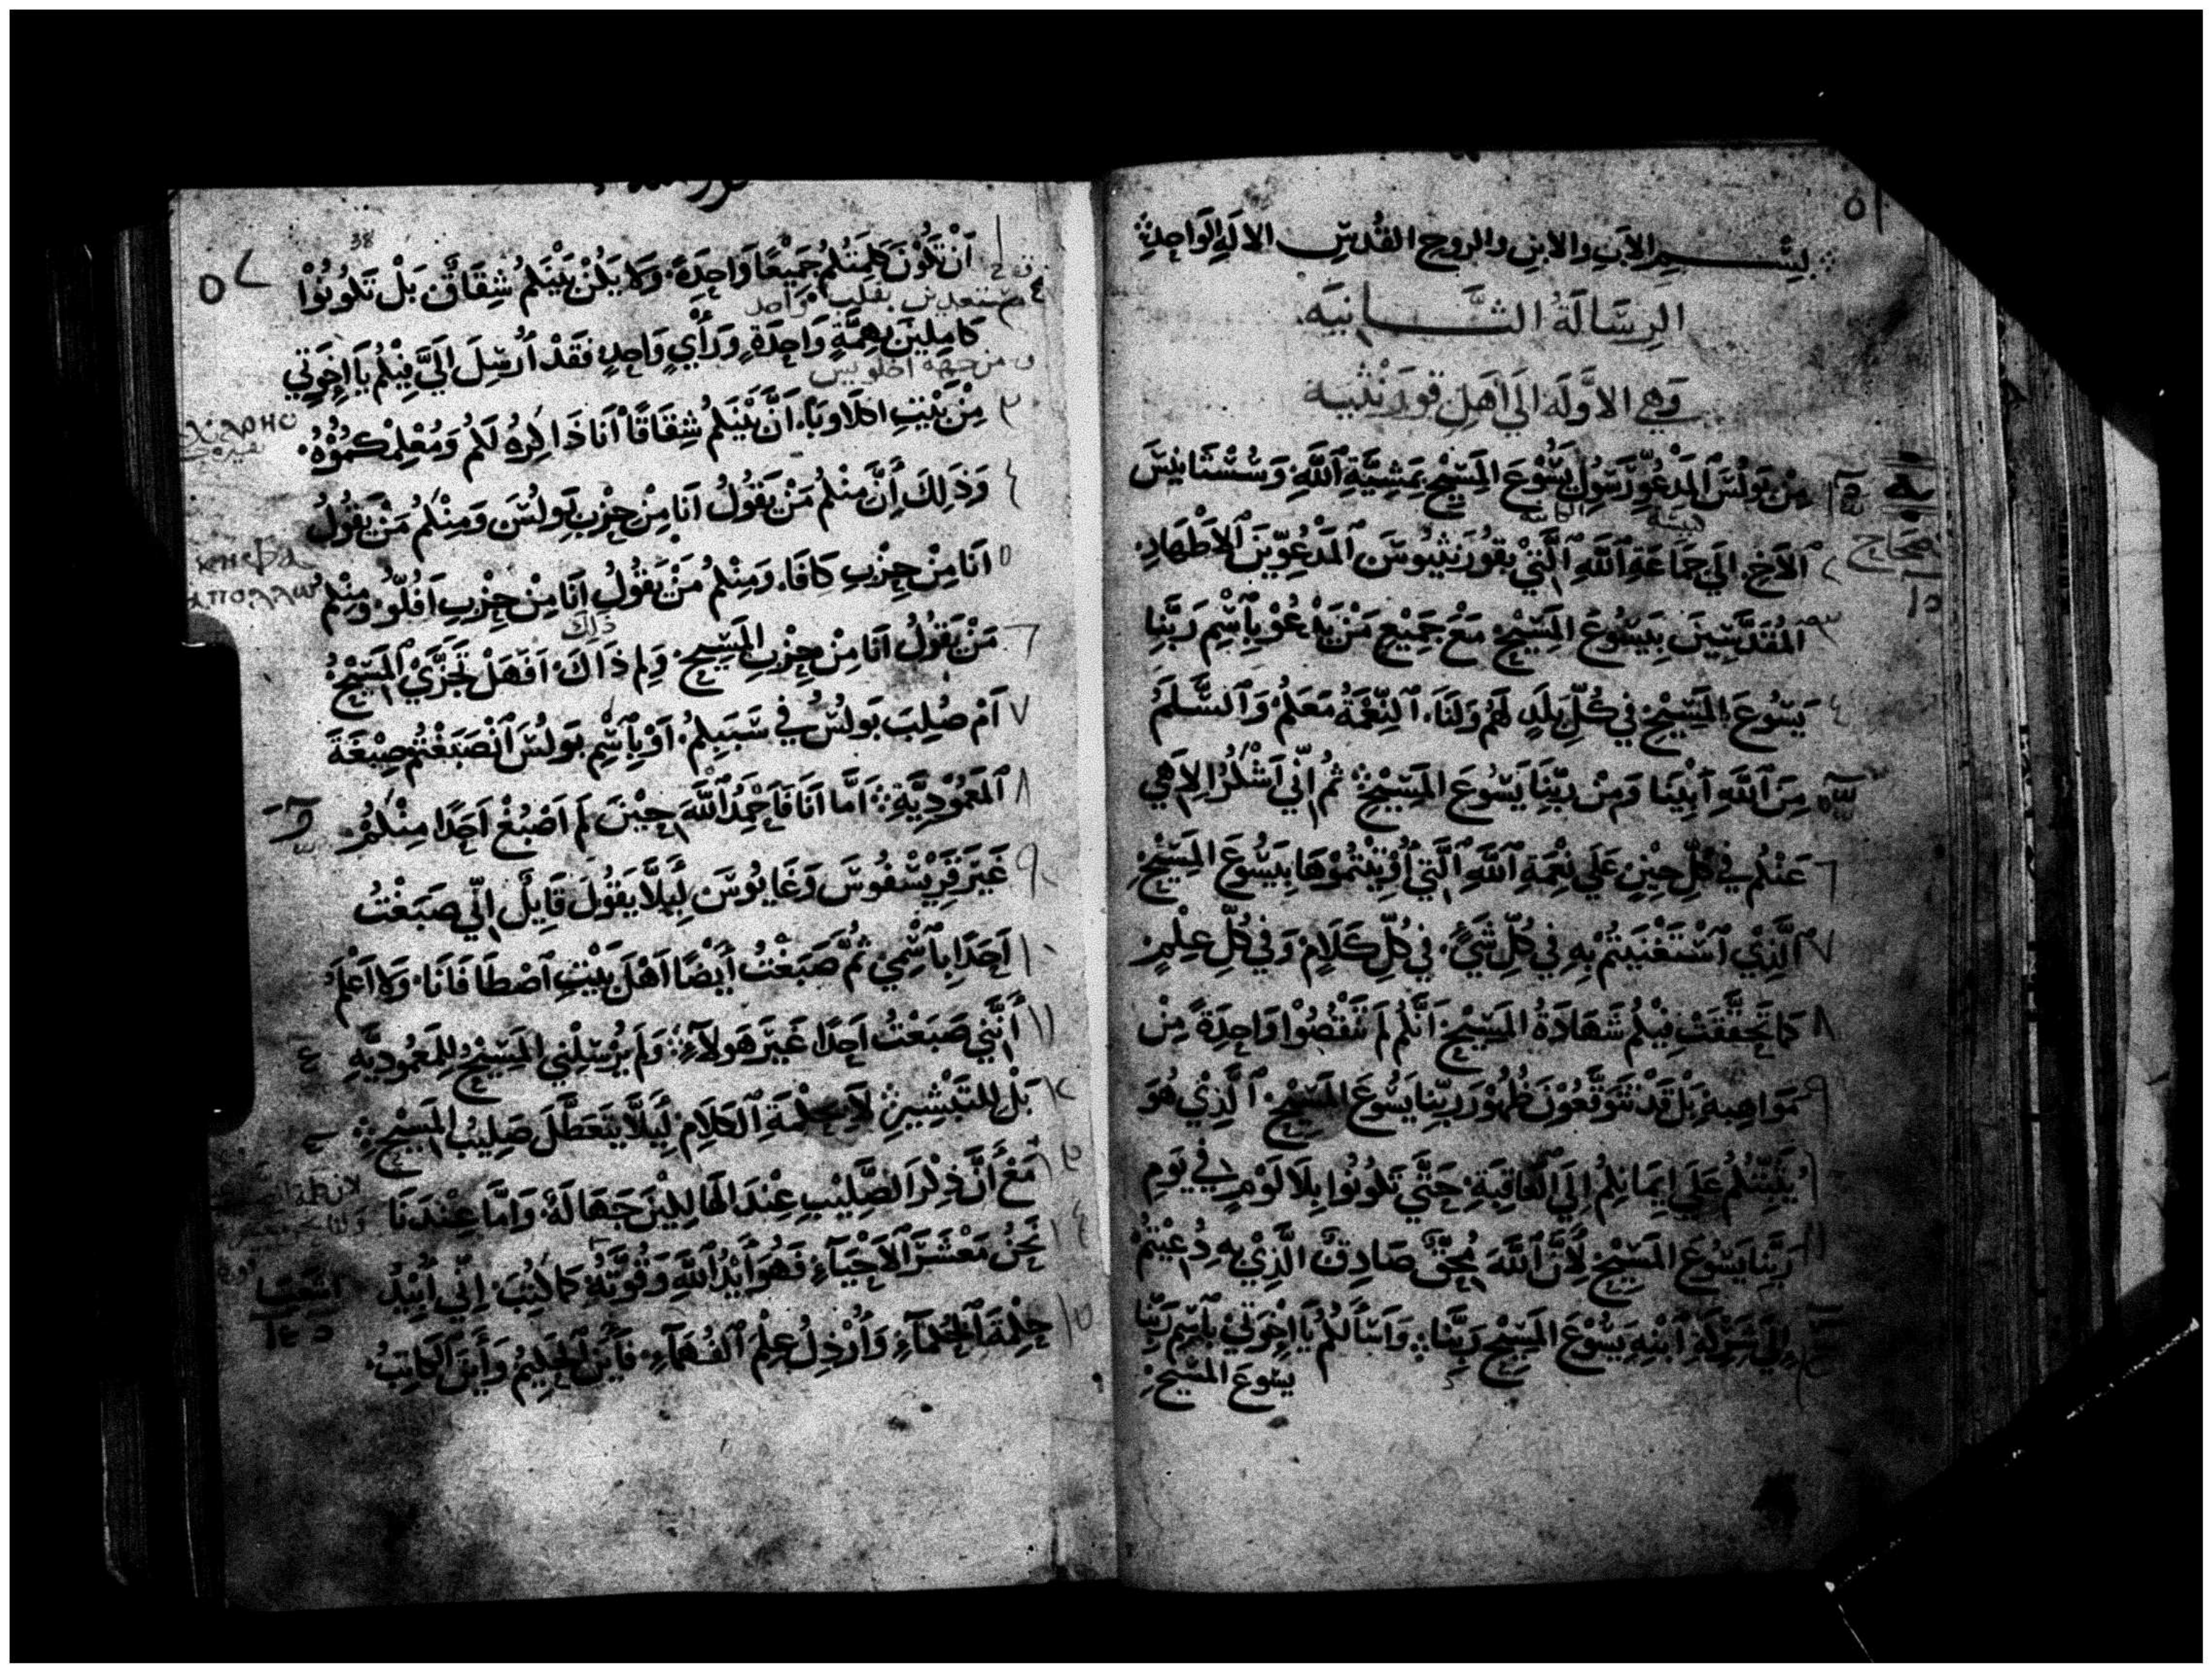 بسم الاب والابن والروح القدس الاله الواحد
الرِسَّالَةُ الثَّانِيَه
وَهِي الاوَّلَه اِلَي اَهلِ قورَنثيه
مِن بَولُسَ ٱلمَدعُوِّ رَسُولِ يَسُّوعَ المَسِيحِ بِمَشِيَّةِ ٱللَّهِ وَسُسْتَانِيسَ
ٱلاَخِ اِلَي جَمَاعَةِ ٱللَّهِ ٱلَّتِي بِقُورَنثِيُوسَ ٱلمَدعُوِّينَ ٱلاَطْهَارِ
المُقَدَّسِينَ بِيَسُّوعَ المَسِيحِ مَعْ جَمِيْعِ مَنْ يَدْعُوْ بِٱسْمِ رَبِّنَا
يَسُوعَ المَسِيحِ فِي كُلِّ بَلَدٍ لَهُمْ وَلَنَا ٱلنِّعْمَةُ مَعَكُمْ وَٱلسَّلَمُ
مِنَ ٱللَّهِ اَبِيْنَا وَمِنْ رَبِّنَا يَسُوعَ المَسِيحِ ثُمَّ اِنِّي اَشْكُرُ اِلاَهِي
عَنْكُم فِي كُلِّ حِيْنٍ عَلَي نِعْمَةِ ٱللَّهِ ٱلَّتِي أُوْتِيْتُمُوْهَا بِيَسُوعَ المَسِيحِ
الَّذِيْ ٱسْتَغْنَيْتُمْ بِهِ فِي كُلِّ شَيءٍ فِي كُلِّ كَلَامٍ وَفِي كُلِّ عِلْمٍ
كَمَا تَحَقَّقَتْ فِيْكُم شَهَادَةُ المَسِيحِ اَنَّكُم لَمْ تَنْقُصُوْا وَاحِدَةً مِنْ
مَوَاهِبِهِ بَلْ قَدْ تَتَوَقَّعُوْنَ ظُهُوْرَ رَبِّنَا يَسُوعَ المَسِيحِ ٱلَّذِيْ هُوَ
يُثَبِّتُكُم عَلَي اِيمَانِكُم اِلَي ٱلعَاقِبَةِ حَتَّي تَكُونُوا بِلَا لَوْمٍ فِي يَومِ
رَبِّنَا يَسُوعَ المَسِيحِ لِأَنَّ ٱللَّهَ مُحِقٌّ صَادِقٌ الَّذِيْ بِهِ دُعِيْتُمْ
اِلَي شَرِكَةِ اَبْنِهِ يَسُوْعَ المَسِيحِ رَبِّنَا وَاَسْأَلُكُمْ يَا اِخْوَتِي بِٱسْمِ رَبِّنَا
يسوعَ المسيحِ
اَنْ تَكُوْنَ كَلِمَتُكُمْ جَمِيْعًا وَاحِدَةً وَلَا يَكُنْ بَيْنَكُمْ شِقَاقٌ بَلْ تَكُونُوْا
كَامِلِينَ بِهِمَّةٍ وَاحِدَةٍ وَرَأْيٍ وَاحِدٍ فَقَدْ أُرْسِلَ اِلَيَّ فِيْكُمْ يَا اِخْوَتِي
مِنْ بَيْتِ اكلَاوبَا اَنَّ بَيْنَكُمْ شِقَاقًا أَنَا ذَاكِرُهُ لَكُمْ وَمُعْلِمُكُمُوْهُ
وَذَلِكَ أَنَّ مِنْكُمْ مَنْ يَقُوْلُ اَنَا مِنْ حِزْبِ بَولُسَ وَمِنْكُمْ مَنْ يَقُولُ
اَنَا مِنْ حِزْبِ كَافَا وَمِنْكُمْ مَنْ يَقُولُ اَنَا مِنْ حِزْبِ اَفُلُّو وَمِنْكُم
مَنْ يَقُوْلُ اَنَا مِنْ حِزْبِ المَسِيحِ وَلِم ذَاكَ اَفَهَلْ تَجَزَّيْ المَسِيحُ
اَمْ صُلِبَ بَولُسُ فِي سَبَبِكُم اَوْ بِٱسْمِ بَولُسَ ٱنْصَبَغْتُم صِبْغَةَ
ٱلمَعْمُوْدِيَّةِ اَمَّا اَنَا فَاَحْمَدُ ٱللَّهَ حِيْنَ لَم اَصْبُغْ اَحَدًا مِنْكُمْ
غَيْرَ قَرِيْسْفُوسَ وَغَايُوسَ لِيَلَّا يَقُوْلَ قَايِلٌ اِنِّي صَبَغْتُ
اَحَدًا بِٱسْمِيْ ثُمَّ صَبَغْتُ أَيضًا اَهْلَ بَيْتِ ٱصْطَافَانَا وَلَا اَعْلَمُ
أَنَّنِي صَبَغْتُ اَحَدًا غَيْرَ هَولَاءِ وَلَم يُرْسِلْنِي المَسِيحُ لِلمَعْمُودِيَّهِ
بَلْ لِلتَّبْشِيرِ لاَ بِحِكْمَةِ ٱلكَلَامِ لِيَلَّا يَتَعَطَّلَ صَلِيبُ المَسِيحِ
مَعْ أَنَّ ذِكْرَ الصَّلِيْبِ عِنْدَ الهَالِكِيْنَ جَهَالَةٌ وَاَمَّا عِنْدَنَا
نَحْنُ مَعْشَرَ ٱلاَحْيَاءِ فَهُوَ أَيْدُ ٱللَّهِ وَقُوَّتُهُ كَمَا كُتِبَ اِنِّي اُبِيْدُ
حِكْمَةَ ٱلحُكَمَاءِ وَأُرْذِلُ عِلْمَ ٱلفُهَمَآءِ فَأَيْنَ الحَكِيْمُ وَأَيْنَ الكَاتِبُ
38
اشعيا